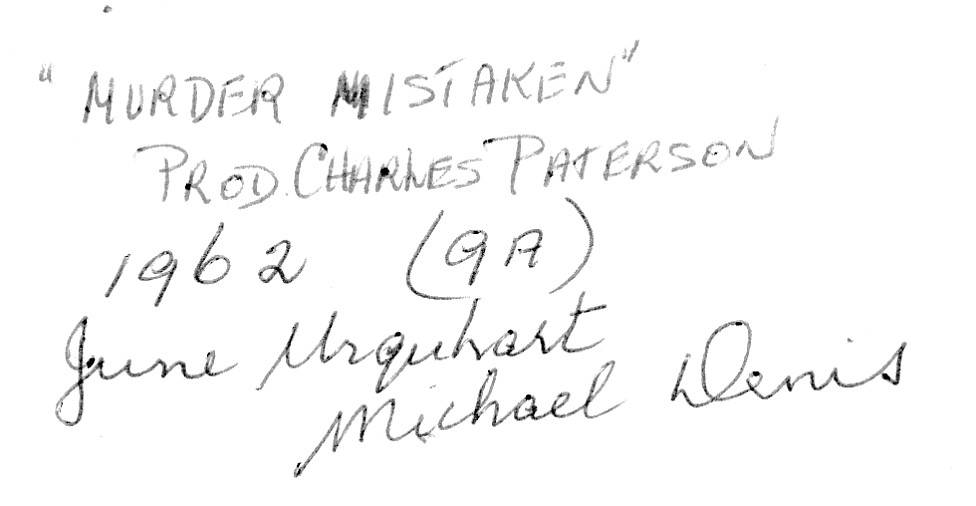 "MURDER MISTAKEN"
PROD. CHARLES PATERSON
1962 (9A)
June Urquhart
Michael Denis